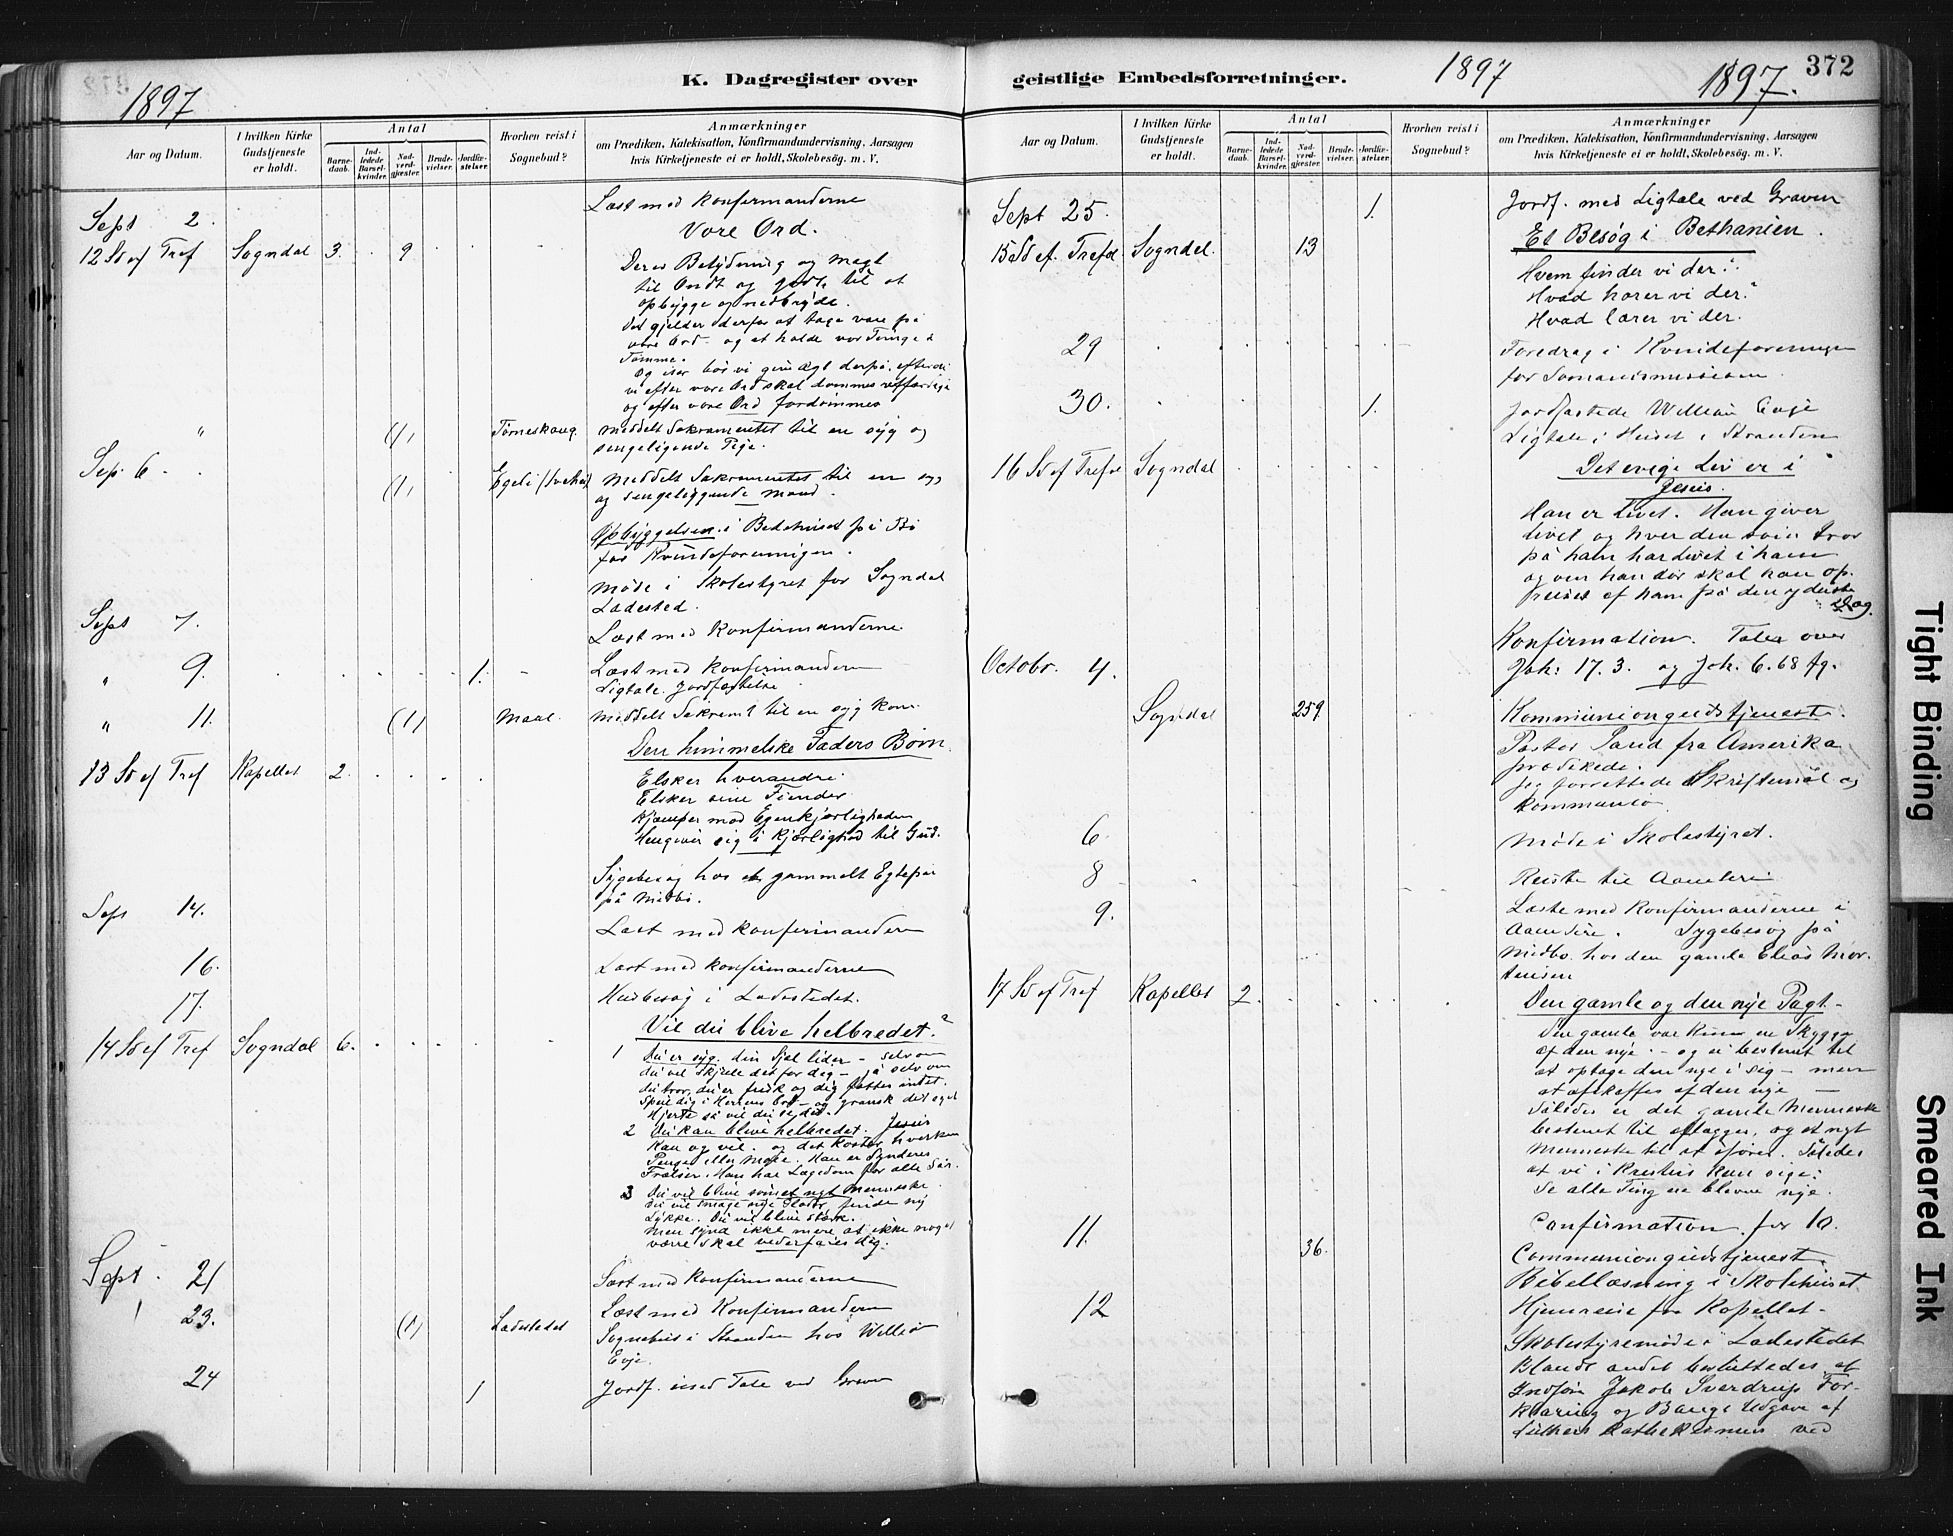 1897
K. Dagregister over
Aar og Datum.
I hvilken Kirke Gudstjeneste er holdt.
Antal
Barnedaab.
Indledede Barselkvinder.
Nadverdgjæster.
Brudevielser.
Jordfæstelser.
Hvorhen reist i Sognebud?
Anmærkninger
om Prædiken, Katekisation, Konfirmandundervisning, Aarsagen
hvis Kirketjeneste ei er holdt, Skolebesög. m. V.
Sept 2. Læst med Konfirmanderne
Vore Ord.
12 S ef Tref Sogndal 3. 9 Deres Betydning og magt
til Ondt og godt, til at
opbygge og nedbryde.
Det gjelder derfor at tage vare på
vore Ord og at holde vor Tunge i
Tømme.
og især bør vi give agt derpå, efterdi
vi efter vore Ord skal dømmes retfærdige
og efter vore Ord fordømmes
" (1) meddelt Sakramentet til en syg og
sengeliggende Pige.
Sep. 6 (1) Egeli meddelt Sakramentet til en syg
og sengeliggende mand.
Opbyggelsen i Bedehuset på Bø
for Kvindeforeningen.
Møde i Skolestyret for Sogndal
Ladested.
Sept 7. Læst med Konfirmanderne.
" 9. 1. Læst med konfirmanderne
Ligtale. Jordfæstelse.
" 11. (1) Maal. meddelt Sakramt til en syg Kone
Den himmelske Faders Børn.
13 S ef Tref Kapellet 2. Elsker hverandre.
Elsker sine Fiender
Kjæmper mod Egenkjærligheden
Hengiver sig i Kjærlighed til Gud.
Sygebesøg hos et gammelt Egtepar
på Midbø.
Sept 14. Læst med konfirmanderne
16. Læst med konfirmanderne
17. Husbesøg i Ladestedet.
Vil du blive helbredet?
14 S ef Tref Sogndal 6. 1 Du er syg. din Sjæl lider – selv om
du vil skjule det for dig – ja selv om
du tror, du er frisk og dig fattes intet.
Speil dig i Herrens Ord – og gransk dit eget
Hjerte så vil du se det.
2 Du kan blive helbredet. Jesus
kan og vil. og det koster hverken
Penge eller Møie. Han er Synderes
Frelser. Han har Lægedom for alle Sår.
3 Du vil blive som et nyt Menneske.
Du vil smage nye Glæder finde ny
Lykke. Du vil blive stærk.
Men synd ikke mere at ikke noget
værre skal vederfares dig.
Sept. 21 Læst med konfirmanderne
23. (1) Ladestedet Læst med Konfirmanderne
Sognebud i Stranden hos William
Evje.
24 1 Jordf. med Tale ved Graven
geistlige Embedsforretninger.
1897
1897.
372
Aar og Datum.
I hvilken Kirke Gudstjeneste er holdt.
Antal
Barnedaab.
Indledede Barselkvinder.
Nadverdgjæster.
Brudevielser.
Jordfæstelser.
Hvorhen reist i Sognebud?
Anmærkninger
om Prædiken, Katekisation, Konfirmandundervisning, Aarsagen
hvis Kirketjeneste ei er holdt, Skolebesög. m. V.
Sept 25. 1. Jordf. med Ligtale ved Graven
Et Besøg i Bethanien.
15 S ef. Trefol Sogndal. 13 Hvem finder vi der?
Hvad hører vi der?
Hvad lærer vi der.
29 Foredrag i Kvindeforeningen
for Sømandsmissionen
30. 1. Jordfæstede William Evje
Ligtale i Huset i Stranden
16 S ef Trefol Sogndal Det evige Liv er i
Jesus.
Han er Livet. Han giver
livet og hver den som tror
på ham har livet i ham
og om han dør skal han op-
reises af ham på den yderste
Dag.
Konfirmation. Taler over
Octobr. 4. Joh. 17.3. og Joh. 6.68 fg.
Sogndal 259 Kommuniongudstjeneste.
Pastor Sand fra Amerika
prædikede.
Jeg forrettede Skriftemål og
kommunio
6. Møde i Skolestyret.
8 Reiste til Aamsire
9. Læste med Konfirmanderne i
Aamsire. Sygebesøg på
Midbø hos den gamle Elias Mor-
tensen
17 S ef Tref Kapellet 2. Den gamle og den nye Pagt.
Den gamle var kun en Skygge
af den nye – og ei bestemt til
at optage den nye i sig – men
at afskaffes af den nye –
Således er det gamle Menneske
bestemt til aflægges, og et nyt
Menneske til at iføres. Således
at vi i Kristus kan sige:
Se alle Ting ere blevne nye.
Confirmation for 10.
11. 36. Communiongudstjenest
Bibellæsning i Skolehuset
12 Hjemreise fra Kapellet –
Skolestyremøde i Ladestedet
Blandt andet besluttedes at
Indføre Jakob Sverdrups For-
klaring og Bangs Udgave af
Luthers Kathekismus ved
Tight Binding
Smeared Ink